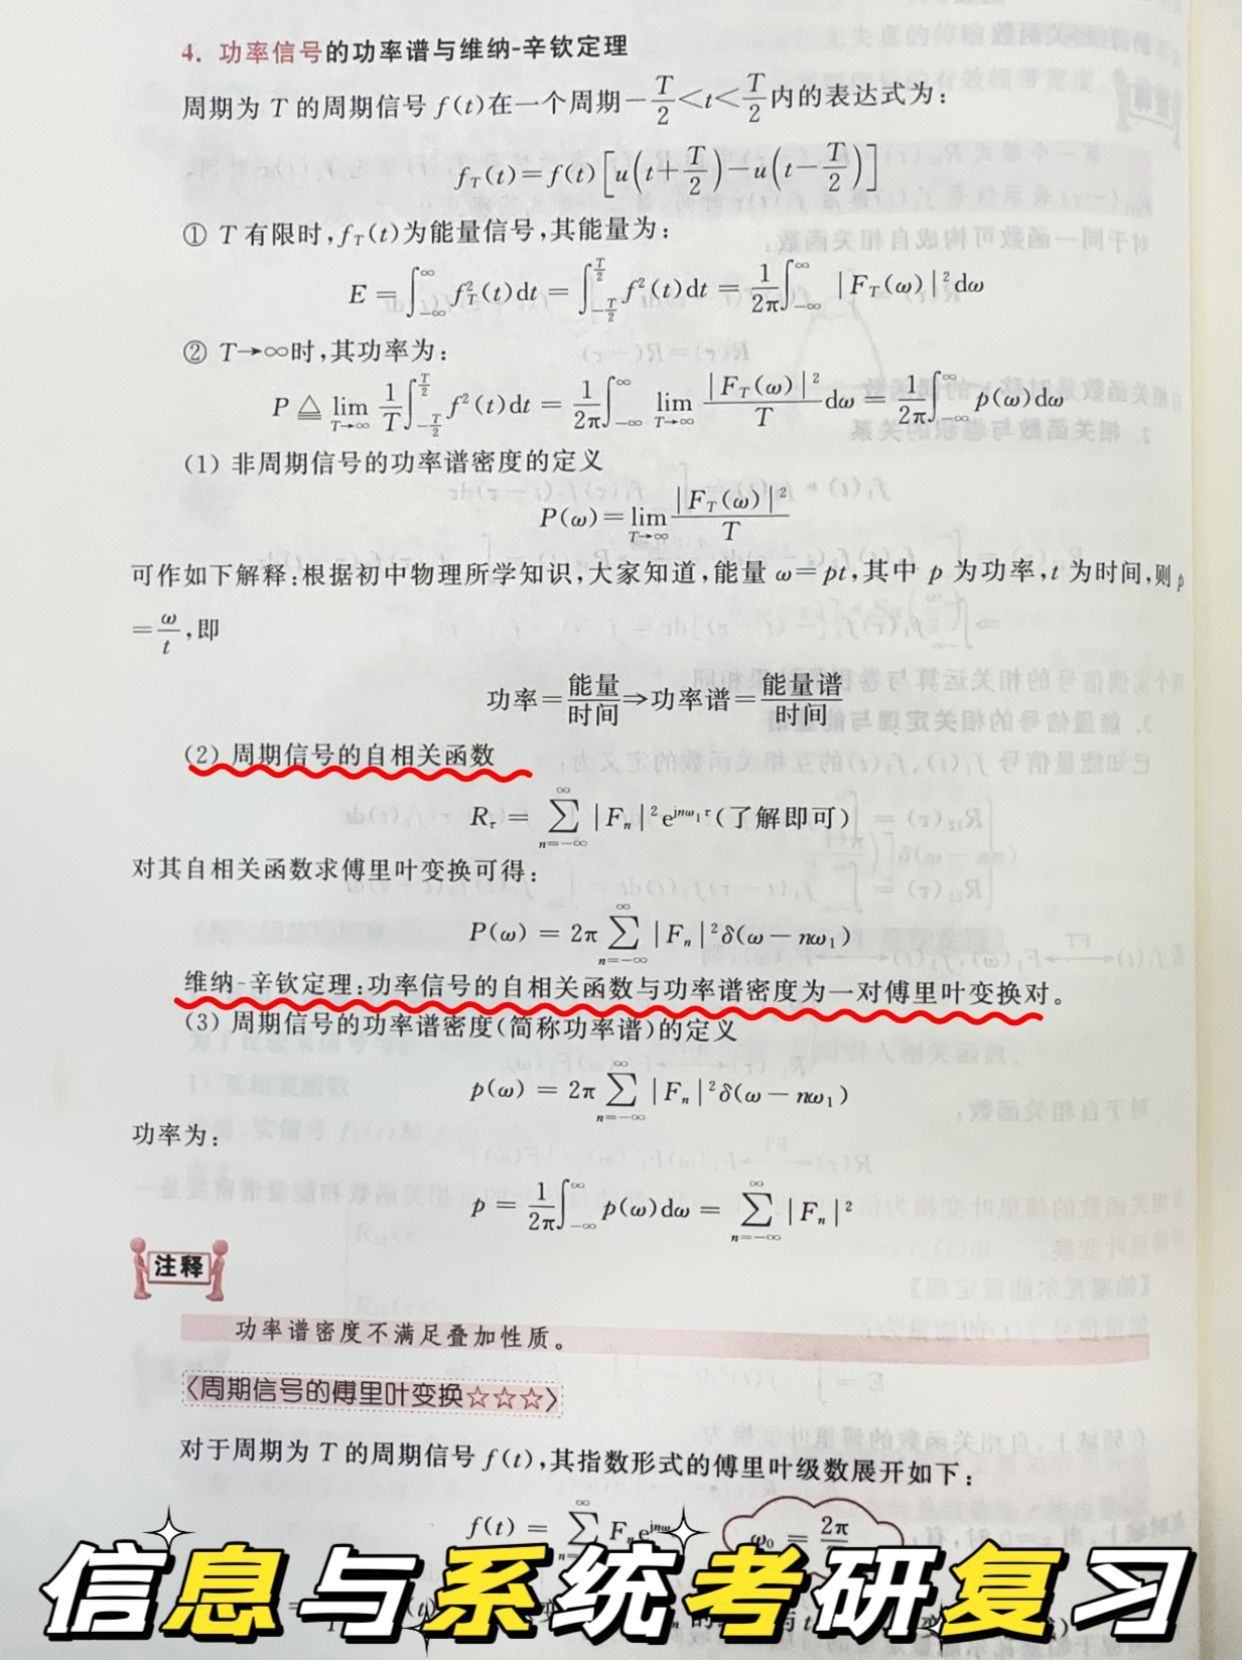 4. 功率信号的功率谱与维纳-辛钦定理
周期为 T 的周期信号 f(t)在一个周期−T/2<t<T/2内的表达式为:
f_T(t)=f(t)[u(t+T/2)−u(t−T/2)]
① T 有限时,f_T(t)为能量信号,其能量为:
E=∫_{−∞}^{∞} f_T²(t)dt=∫_{−T/2}^{T/2} f²(t)dt=1/2π∫_{−∞}^{∞} |F_T(ω)|²dω
② T→∞时,其功率为:
P≜lim_{T→∞} 1/T∫_{−T/2}^{T/2} f²(t)dt=1/2π∫_{−∞}^{∞} lim_{T→∞} |F_T(ω)|²/T dω=1/2π∫_{−∞}^{∞} p(ω)dω
(1) 非周期信号的功率谱密度的定义
P(ω)=lim_{T→∞} |F_T(ω)|²/T
可作如下解释:根据初中物理所学知识,大家知道,能量 ω=pt,其中 p 为功率,t 为时间,则 p
=ω/t,即
功率=能量/时间⇒功率谱=能量谱/时间
(2) 周期信号的自相关函数
R_τ=∑_{n=−∞}^{∞} |F_n|²e^{jnω₁τ}(了解即可)
对其自相关函数求傅里叶变换可得:
P(ω)=2π∑_{n=−∞}^{∞} |F_n|²δ(ω−nω₁)
维纳-辛钦定理:功率信号的自相关函数与功率谱密度为一对傅里叶变换对。
(3) 周期信号的功率谱密度(简称功率谱)的定义
p(ω)=2π∑_{n=−∞}^{∞} |F_n|²δ(ω−nω₁)
功率为:
p=1/2π∫_{−∞}^{∞} p(ω)dω=∑_{n=−∞}^{∞} |F_n|²
注释
功率谱密度不满足叠加性质。
〈周期信号的傅里叶变换☆☆☆〉
对于周期为 T 的周期信号 f(t),其指数形式的傅里叶级数展开如下:
f(t)=∑ F_n e^{jnω} ω₀=2π
信息与系统考研复习